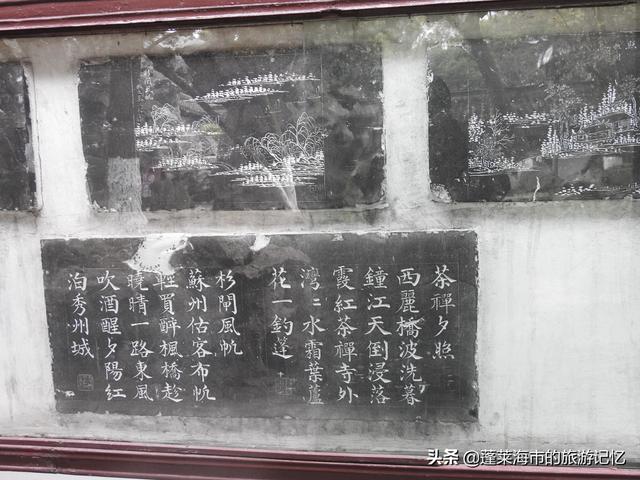 茶禪夕照
西麗橋波洗暮
鐘江天倒浸落
霞紅茶禪寺外
灣〻水霜葉蘆
花一釣蓬
杉閘風帆
蘇州估客布帆
輕買醉楓橋趁
曉晴一路東風
吹酒醒夕陽紅
泊秀州城
头条 @蓬莱海市的旅游记忆